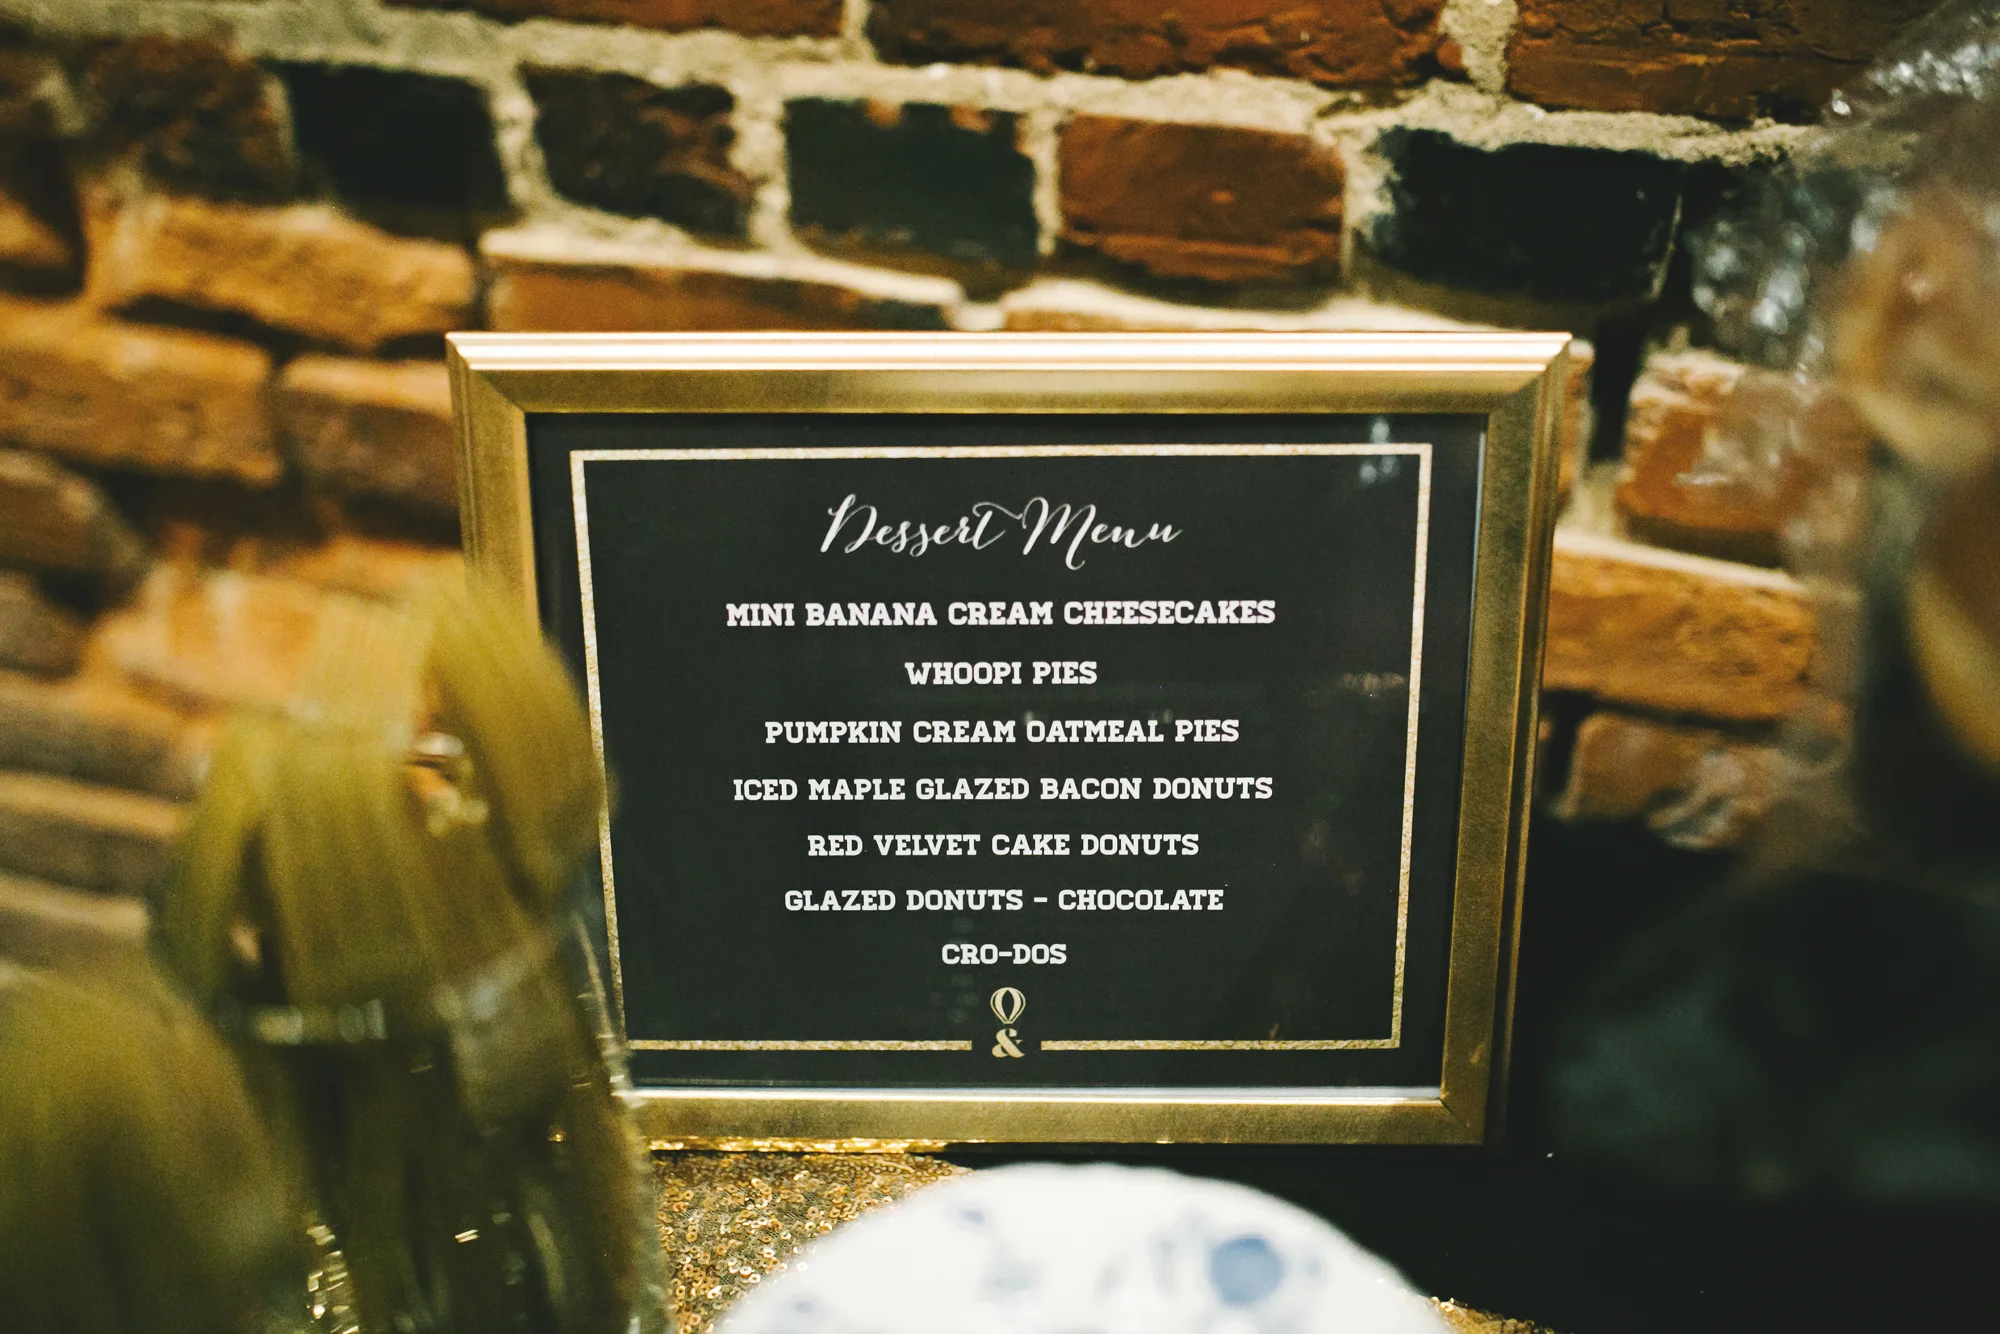 Dessert Menu
MINI BANANA CREAM CHEESECAKES
WHOOPI PIES
PUMPKIN CREAM OATMEAL PIES
ICED MAPLE GLAZED BACON DONUTS
RED VELVET CAKE DONUTS
GLAZED DONUTS - CHOCOLATE
CRO-DOS
&